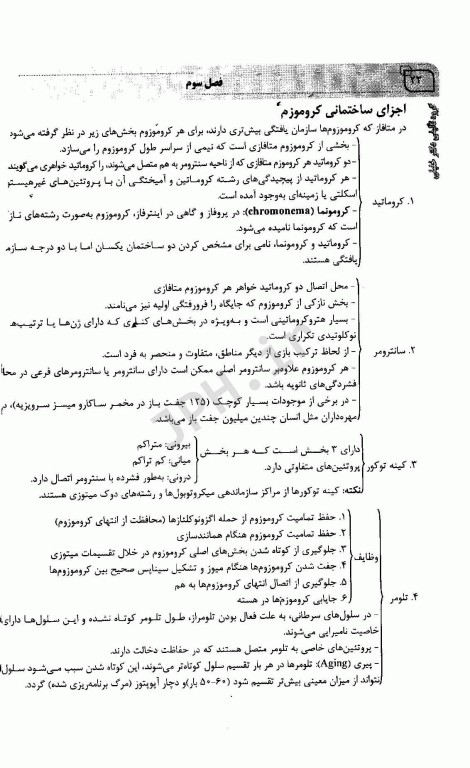 ۲۲
فصل سوم
اجزای ساختمانی کروموزم
در متافاز که کروموزوم‌ها سازمان یافتگی بیش‌تری دارند، برای هر کروموزوم بخش‌های زیر در نظر گرفته می‌شود
۱. کروماتید
- بخشی از کروموزوم متافازی است که نیمی از سراسر طول کروموزوم را می‌سازد.
- دو کروماتید هر کروموزم متافازی که از ناحیه سنترومر به هم متصل می‌شوند، را کروماتید خواهری می‌گویند
- هر کروماتید از پیچیدگی‌های رشته کروماتین و آمیختگی آن با پروتئین‌های غیرهیستو
اسکلتی یا زمینه‌ای به‌وجود آمده است.
- کرومونما (chromonema): در پروفاز و گاهی در اینترفاز، کروموزوم به‌صورت رشته‌های ناز
است که کرومونما نامیده می‌شود.
- کروماتید و کرومونما، نامی برای مشخص کردن دو ساختمان یکسان اما با دو درجه سازم
یافتگی هستند.
۲. سانترومر
- محل اتصال دو کروماتید خواهر هر کروموزوم متافازی
- بخش نازکی از کروموزوم که جایگاه را فرورفتگی اولیه نیز می‌نامند.
- بسیار هتروکروماتینی است و به‌ویژه در بخش‌های کناری که دارای ژن‌ها یا ترتیب‌ها
نوکلوتیدی تکراری است.
- از لحاظ ترکیب بازی از دیگر مناطق، متفاوت و منحصر به فرد است.
- هر کروموزوم علاوه‌بر سانترومر اصلی ممکن است دارای سانترومر یا سانترومرهای فرعی در محل
فشردگی‌های ثانویه باشد.
- در برخی از موجودات بسیار کوچک (۱۲۵ جفت باز در مخمر ساکارو میسز سرویزیه)، در
مهره‌داران مثل انسان چندین میلیون جفت باز می‌باشد.
۳. کینه توکور
دارای ۳ بخش است که هر بخش
پروتئین‌های متفاوتی دارد.
بیرونی: متراکم
میانی: کم تراکم
درونی: به‌طور فشرده با سنترومر اتصال دارد.
نکته: کینه توکورها از مراکز سازماندهی میکروتوبول‌ها و رشته‌های دوک میتوزی هستند.
۴. تلومر
وظایف
۱. حفظ تمامیت کروموزوم از حمله اگزونوکلئازها (محافظت از انتهای کروموزوم)
۲. حفظ تمامیت کروموزوم هنگام همانندسازی
۳. جلوگیری از کوتاه شدن بخش‌های اصلی کروموزوم در خلال تقسیمات میتوزی
۴. جفت شدن کروموزوم‌ها هنگام میوز و تشکیل سیناپس صحیح بین کروموزوم‌ها
۵. جلوگیری از اتصال انتهای کروموزوم‌ها به هم
۶. جایابی کروموزم‌ها در هسته
- در سلول‌های سرطانی، به علت فعال بودن تلومراز، طول تلومر کوتاه نشده و این سلول‌ها دارای
خاصیت نامیرایی می‌شوند.
- پروتئین‌های خاصی به تلومر متصل هستند که در حفاظت دخالت دارند.
- پیری (Aging): تلومرها در هر بار تقسیم سلول کوتاه‌تر می‌شوند، این کوتاه شدن سبب می‌شود سلول
نتواند از میزان معینی بیش‌تر تقسیم شود (۶۰-۵۰ بار) و دچار آپوپتوز (مرگ برنامه‌ریزی شده) گردد.